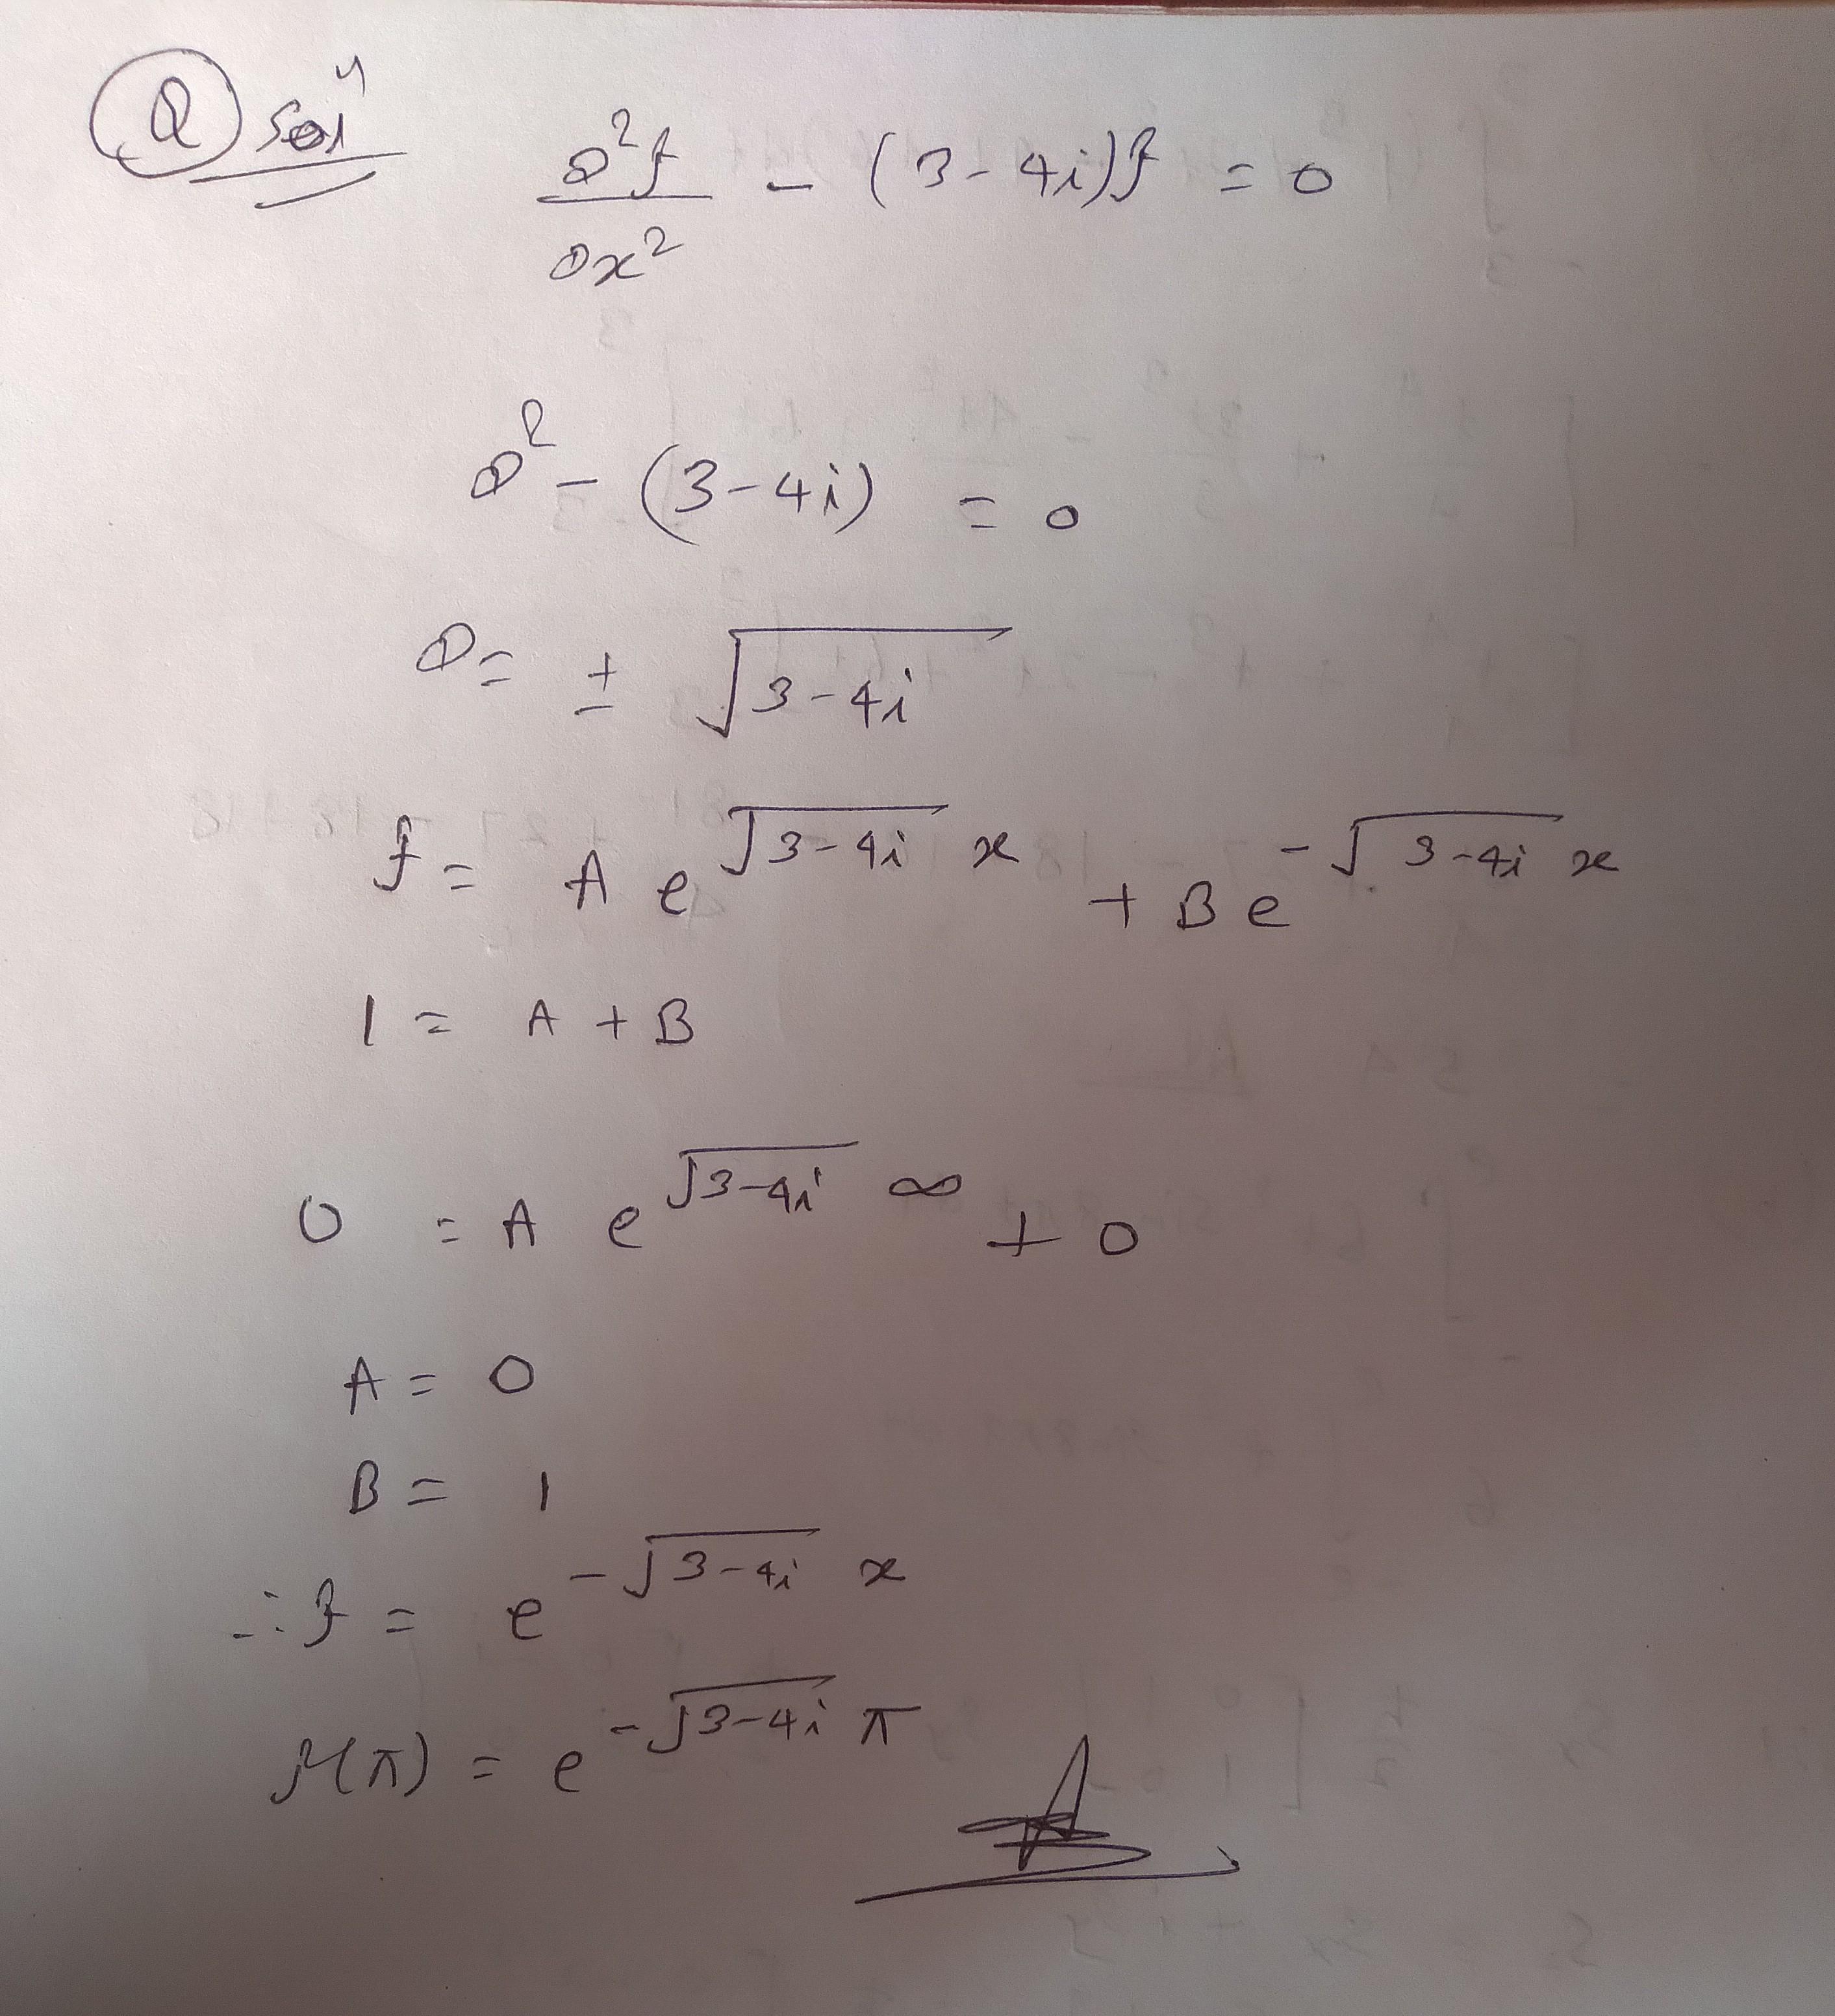 Q solⁿ
∂²f/∂x² - (3-4i)f = 0
D² - (3-4i) = 0
D = ± √(3-4i)
f = A e^(√(3-4i) x) + B e^(-√(3-4i) x)
1 = A + B
0 = A e^(√(3-4i) ∞) + 0
A = 0
B = 1
∴ f = e^(-√(3-4i) x)
f(π) = e^(-√(3-4i) π)